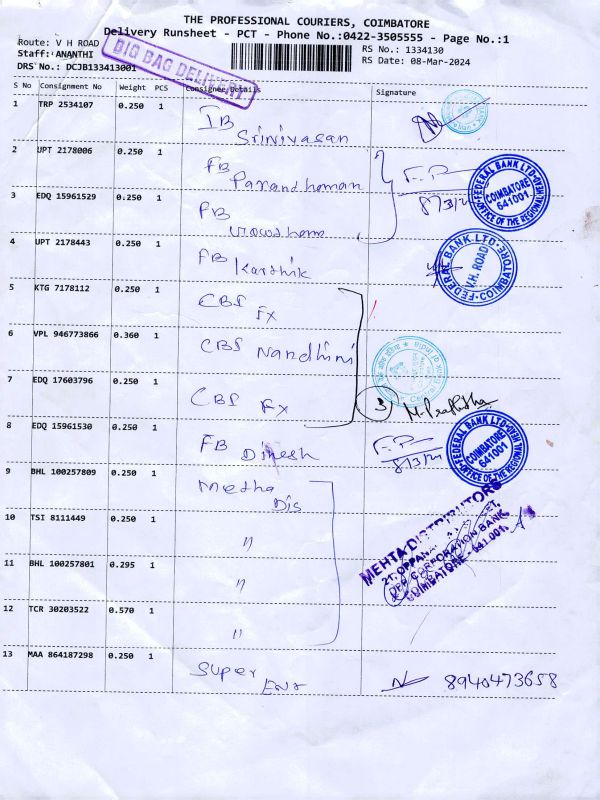 THE PROFESSIONAL COURIERS, COIMBATORE
Delivery Runsheet - PCT - Phone No.:0422-3505555 - Page No.:1
Route: V H ROAD
RS No.: 1334130
Staff: ANANTHI
RS Date: 08-Mar-2024
DRS No.: DCJB133413001
BIG BAG DELIVERY
S No Consignment No Weight PCS Consignee Details Signature
1 TRP 2534107 0.250 1 IB
Srinivasan
2 UPT 2178006 0.250 1 FB
Parandhaman
8/3/2
FEDERAL BANK LTD
COIMBATORE
641001
OFFICE OF THE REGIONAL HEAD
3 EDQ 15961529 0.250 1 FB
4 UPT 2178443 0.250 1 FB
Karthik
FEDERAL BANK LTD.
V.H. ROAD
COIMBATORE
5 KTG 7178112 0.250 1 CBI
FX
6 VPL 946773866 0.360 1 CBI Nandhini
7 EDQ 17603796 0.250 1 CBI FX
3
8 EDQ 15961530 0.250 1 FB Dinesh
8/3/2
FEDERAL BANK LTD
COIMBATORE
641001
OFFICE OF THE REGIONAL HEAD
9 BHL 100257809 0.250 1 Metha
Dis
MEHTA DISTRIBUTORS
CORPORATION BANK
COIMBATORE - 641 001.
10 TSI 8111449 0.250 1 "
11 BHL 100257801 0.295 1 "
12 TCR 30203522 0.570 1 "
13 MAA 864187298 0.250 1 Super
Ent
8940473658